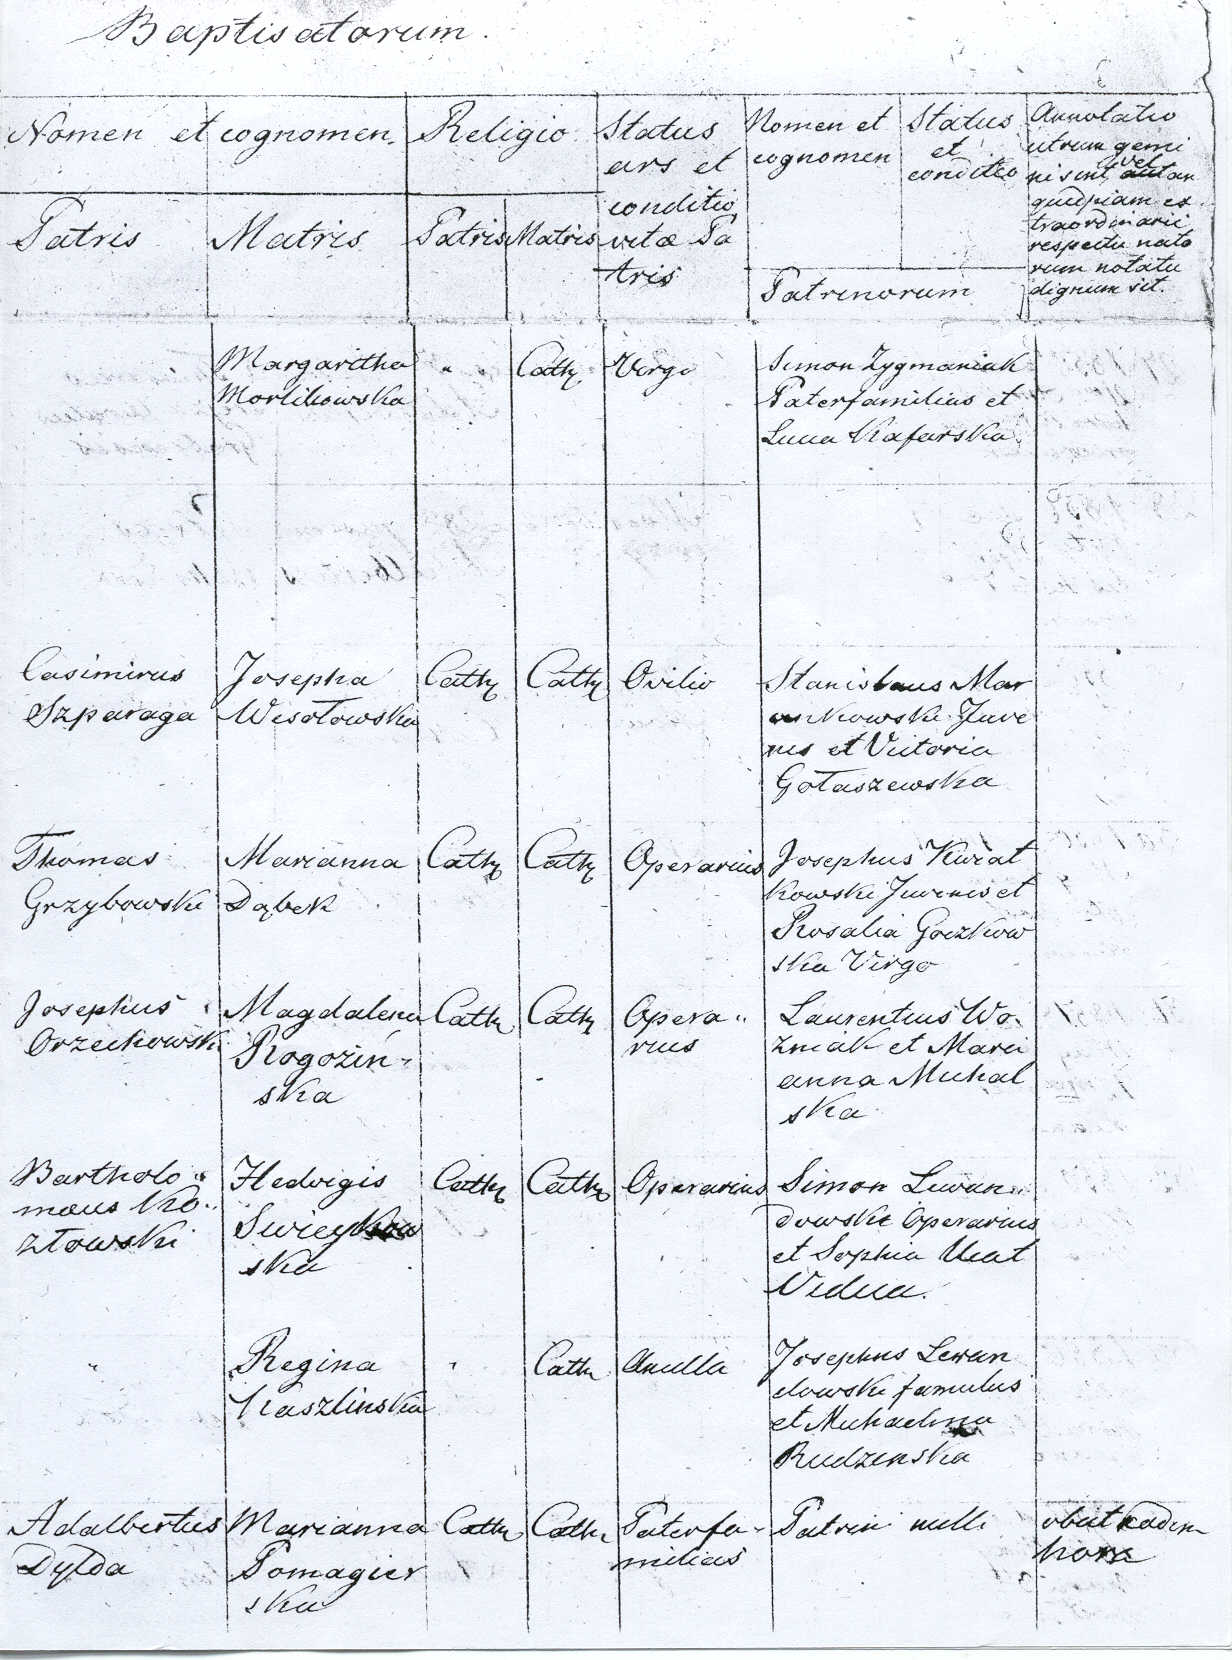 Baptisatorum.
Nomen et cognomen.
Religio
Status
ars et
conditio
vitæ Pa
tris
Nomen et
cognomen
Status
et
conditio
Patrinorum
Annotatio
utrum gemi
ni sint vel an
quidpiam ex
traordinarii
respectu nato
rum notatu
dignum sit.
Patris
Matris
Patris
Matris
Margaritha
Morlikowska
"
Cath
Virgo
Simon Zygmaniak
Paterfamilias et
Luca Kafarska
Casimirus
Szparaga
Josepha
Wesołowska
Cath
Cath
Ovilio
Stanislaus Mar
Juve
nis et Victoria
Gołaszewska
Thomas
Grzybowski
Marianna
Dąbek
Cath
Cath
Operarius
Josephus Kwiat
kowski Juvenis et
Rosalia Goczkow
ska Virgo
Josephus
Orzechowski
Magdalena
Rogoziń-
ska
Cath
Cath
Opera"
rius
Laurentius Wo
zniak et Mari
anna Michal
ska
Bartholo"
mæus Ko"
złowski
Hedvigis
ska
Cath
Cath
Operarius
Simon Lewan"
dowski Operarius
et Sophia
Vidua.
"
Regina
Kaszlinska
"
Cath
Ancilla
Josephus Lewan
dowski famulus
et Michaelina
Rudzinska
Adalbertus
Dylda
Marianna
Pomagier
ska
Cath
Cath
Paterfa-
milias
Patrini nulli
obiit eadem
hora